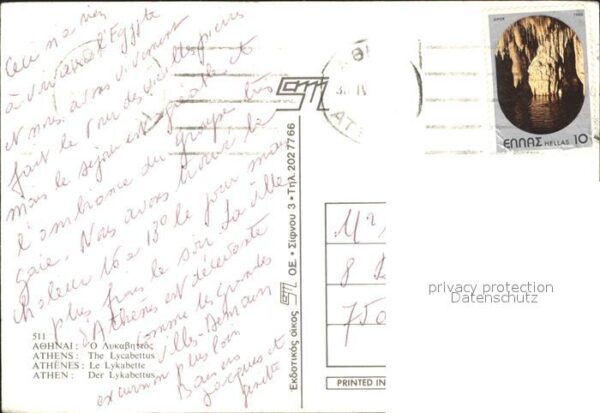 Ceci n'a rien
à voir avec l'Egypte
et nous avons vivement
fait le tour des vieilles pierres
mais le séjour est agréable et
l'ambiance du groupe très
gaie. Nous avons trouvé la
chaleur 16 à 18° le jour mais
plus frais le soir. La ville
d'Athènes est décevante
comme les grandes
villes. Demain
excursion plus loin
Baisers
Jacques et
511
ΑΘΗΝΑΙ: Ο Λυκαβηττός
ATHENS: The Lycabettus
ATHÈNES: Le Lykabette
ATHEN: Der Lykabettus
Εκδοτικός οίκος Ο.Ε. • Σίφνου 3 • Τηλ. 202 77 66
ΕΛΛΑΣ HELLAS 10
8
750
privacy protection
Datenschutz
PRINTED IN